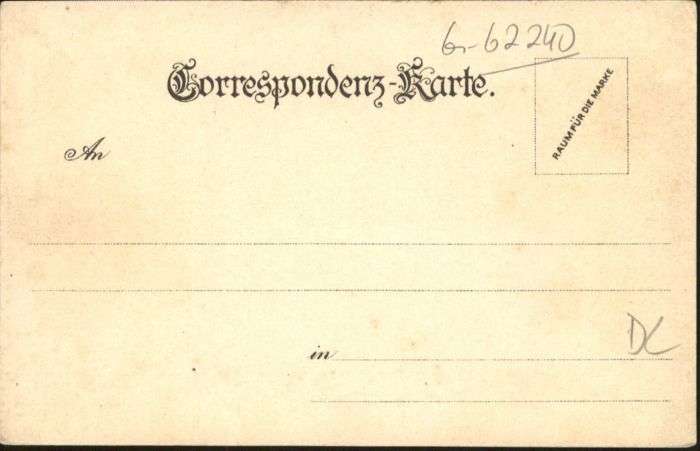 6-62240
Correspondenz-Karte.
RAUM FÜR DIE MARKE
An
in
DL